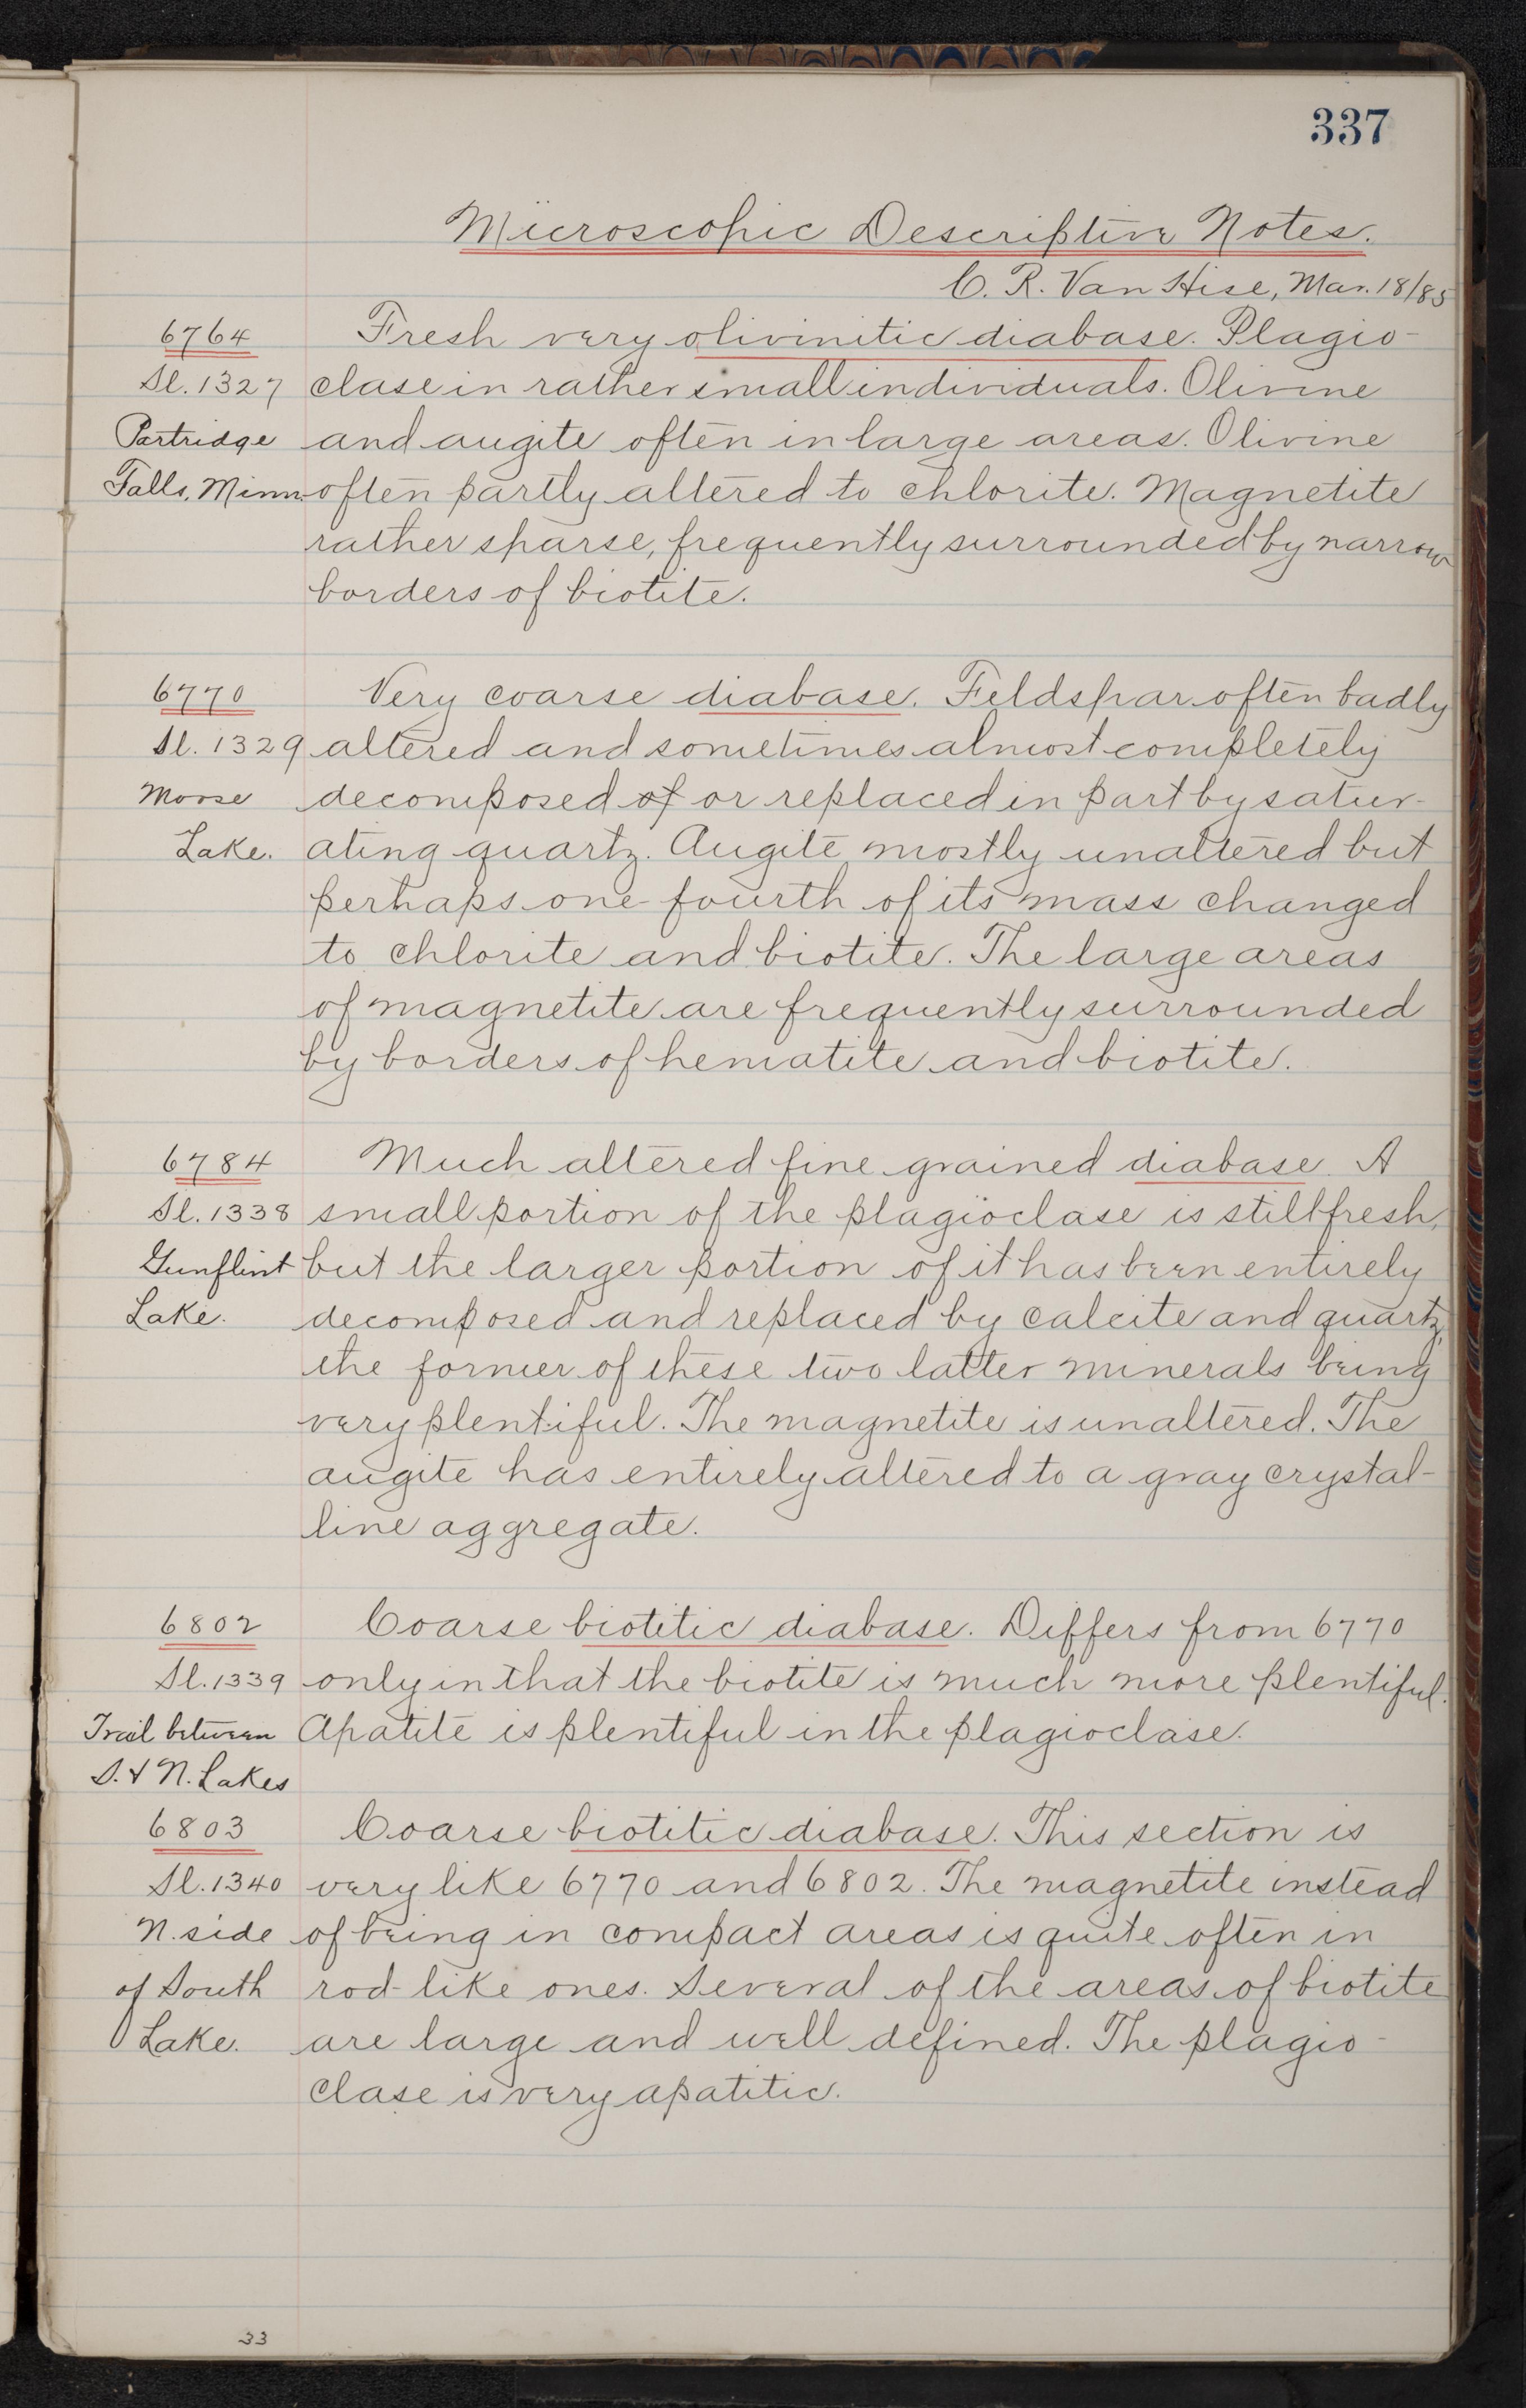 337
Microscopic Descriptive Notes.
C. R. Van Hise, Mar. 18/85
6764 Fresh very olivinitic diabase. Plagio-
Sl. 1327 clase in rather small individuals. Olivine
Partridge and augite often in large areas. Olivine
Falls, Minn. often partly altered to chlorite. Magnetite
rather sparse, frequently surrounded by narrow
borders of biotite.
6770 Very coarse diabase. Feldspar often badly
Sl. 1329 altered and sometimes almost completely
Moose decomposed of or replaced in part by satur-
Lake. ating quartz. Augite mostly unaltered but
perhaps one-fourth of its mass changed
to chlorite and biotite. The large areas
of magnetite are frequently surrounded
by borders of hematite and biotite.
6784 Much altered fine grained diabase. A
Sl. 1338 small portion of the plagioclase is still fresh,
Gunflint but the larger portion of it has been entirely
Lake. decomposed and replaced by calcite and quartz,
the former of these two latter minerals being
very plentiful. The magnetite is unaltered. The
augite has entirely altered to a gray crystal-
line aggregate.
6802 Coarse biotitic diabase. Differs from 6770
Sl. 1339 only in that the biotite is much more plentiful.
Trail between Apatite is plentiful in the plagioclase.
S. & N. Lakes
6803 Coarse biotitic diabase. This section is
Sl. 1340 very like 6770 and 6802. The magnetite instead
N. side of being in compact areas is quite often in
of South rod-like ones. Several of the areas of biotite
Lake. are large and well defined. The plagio-
clase is very apatitic.
33